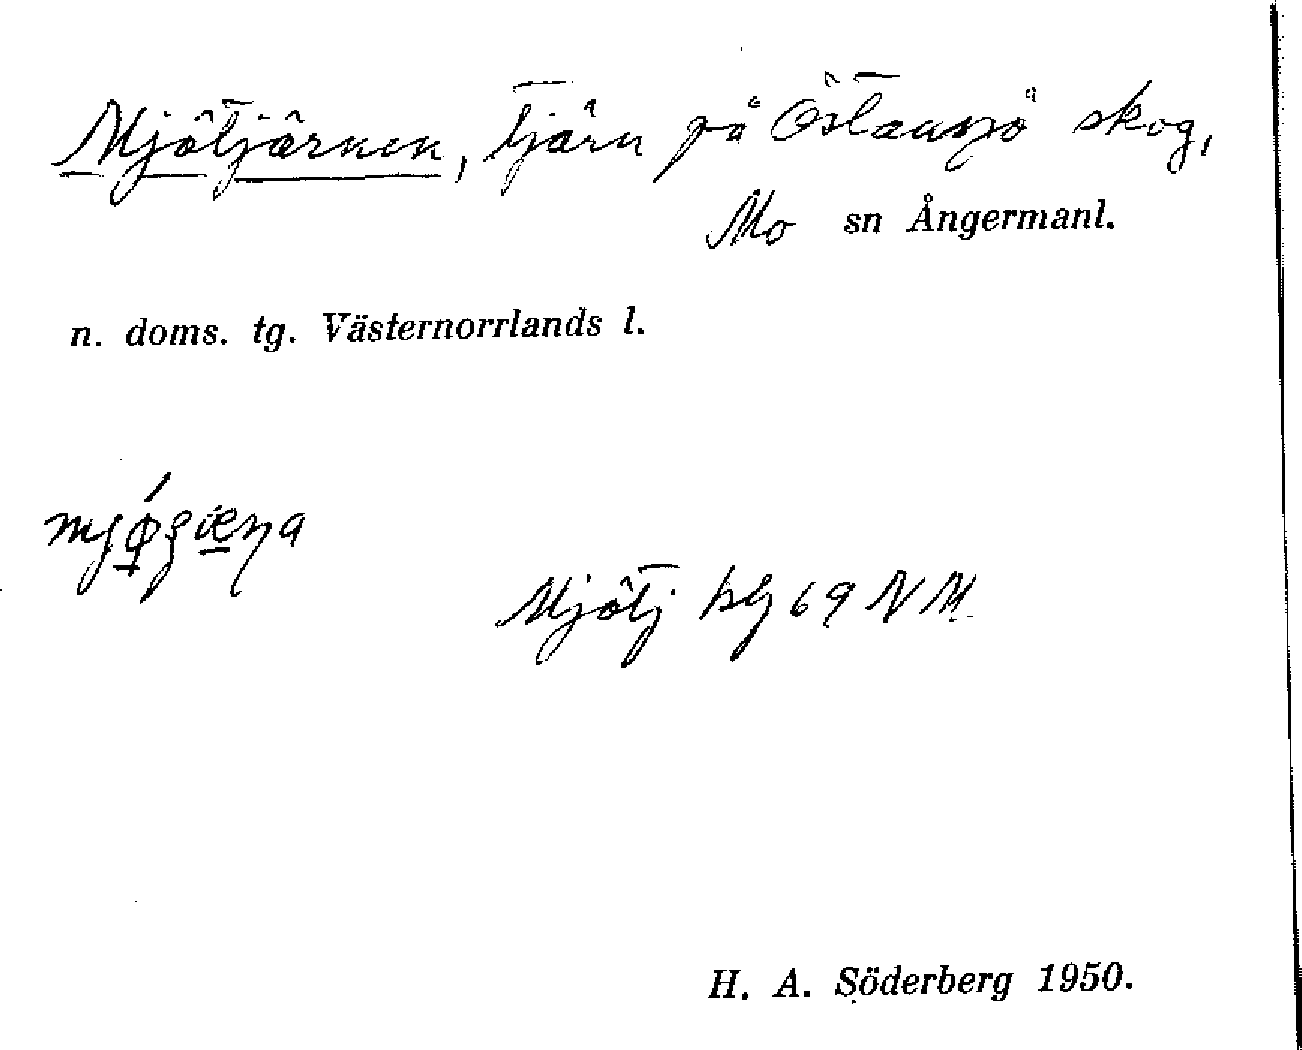 Mjötjärnen, tjärn på Östansjö skog,
Mo sn Ångermanl.
n. doms. tg. Västernorrlands l.
Mjötj hg 69 NM
H. A. Söderberg 1950.